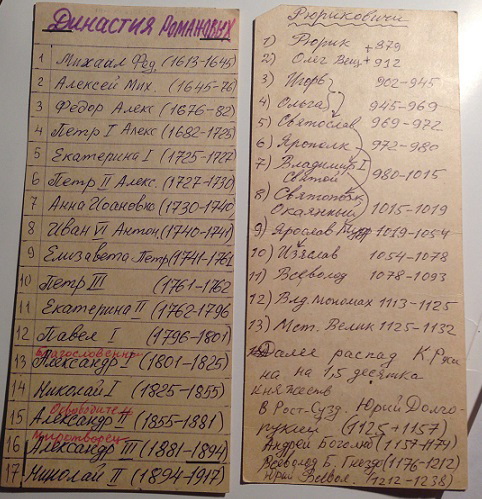 Династия Романовых
1 Михаил Фед. (1613-1645)
2 Алексей Мих. (1645-76)
3 Фёдор Алекс (1676-82)
4 Петр I Алекс (1682-1725)
5 Екатерина I (1725-1727)
6 Петр II Алекс. (1727-1730)
7 Анна Иоановна (1730-1740)
8 Иван VI Антон. (1740-1741)
9 Елизавета Петр (1741-1761)
10 Петр III (1761-1762
11 Екатерина II (1762-1796
12 Павел I (1796-1801)
Благословенный
13 Александр I (1801-1825)
14 Николай I (1825-1855)
Освободитель
15 Александр II (1855-1881)
Миротворец
16 Александр III (1881-1894)
17 Николай II (1894-1917)
Рюриковичи
1) Рюрик +879
2) Олег Вещ +912
3) Игорь 902-945
4) Ольга 945-969
5) Святослав 969-972
6) Ярополк 972-980
7) Владимир I
Святой 980-1015
8) Святополк
Окаянный 1015-1019
9) Ярослав 1019-1054
10) Изяслав 1054-1078
11) Всеволод 1078-1093
12) Влд. Мономах 1113-1125
13) Мст. Велик 1125-1132
Далее распад К. Р
на на 1,5 десятка
княжеств
В Рост-Сузд. Юрий Долго-
рукий (1125+1157)
Андрей Боголюб (1157-1174)
Всеволод Б. Гнездо (1176-1212)
Юрий Всевол. (1212-1238)